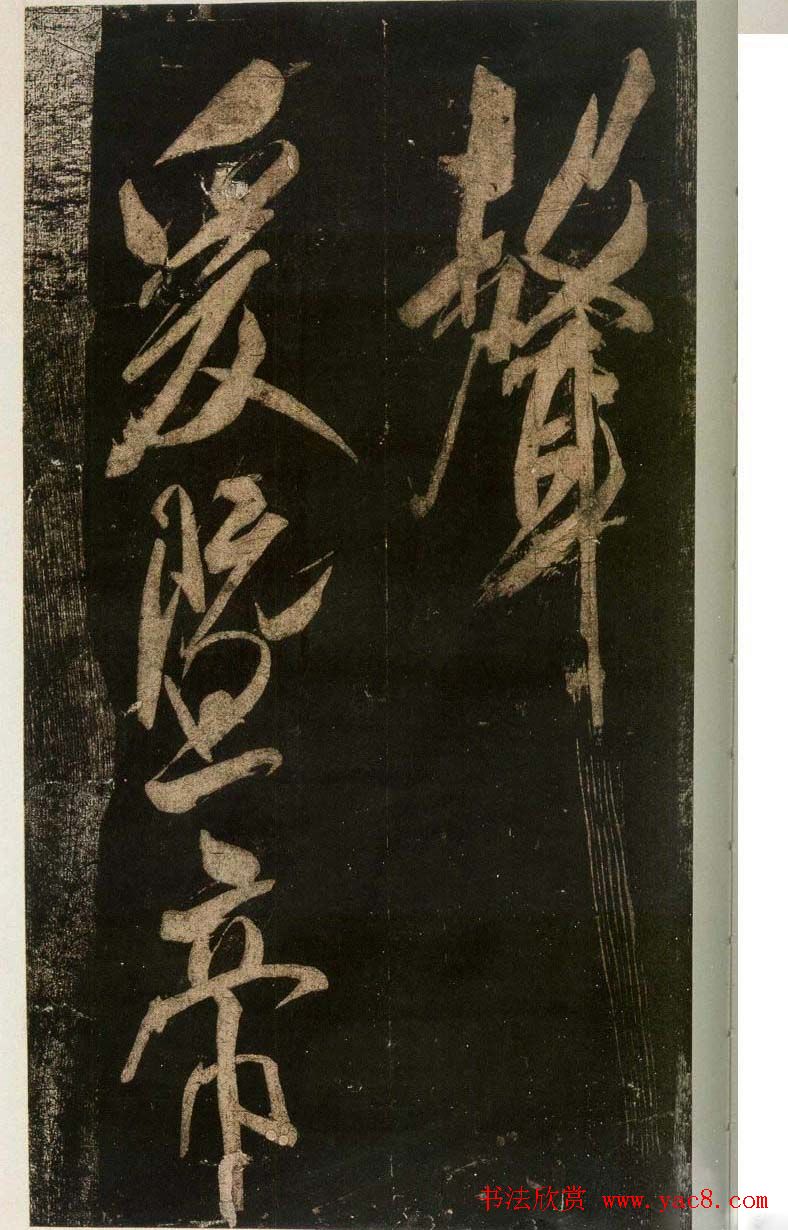 聲
爰暨帝
书法欣赏 www.yac8.com